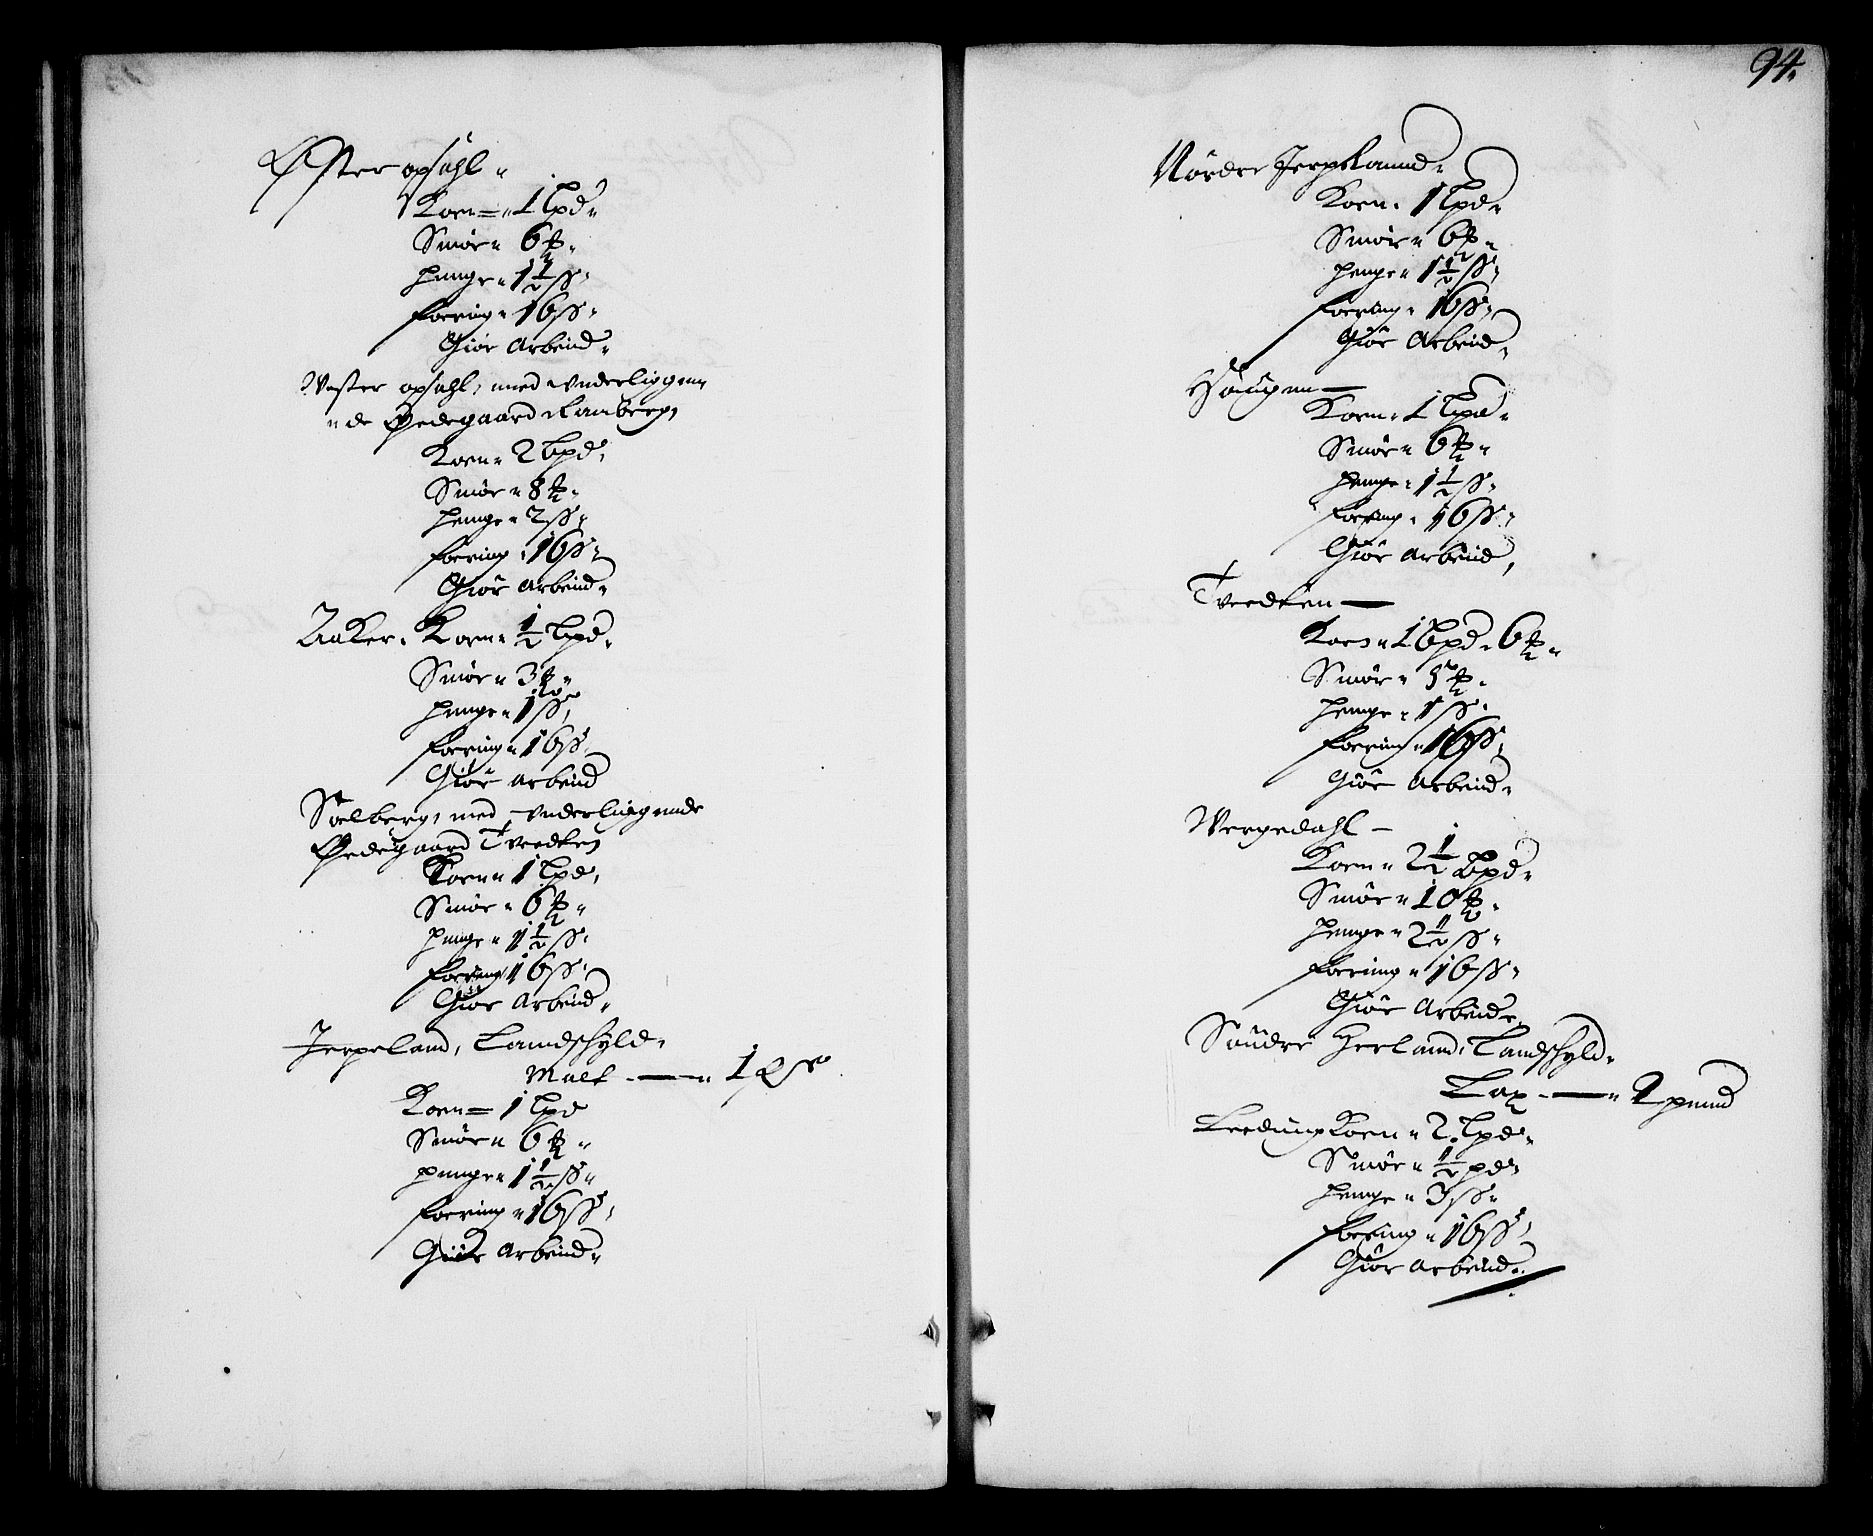 Øster opsahl
Koren 1 lpd
Smør 6 ℔
penge 1½ ß
foering 16 ß
Giør Arbeid
Wester opsahl, med vnderliggen
de Ødegaard Ramberg
Koren 2 bpd
Smør 8 ℔
penge 2 ß
foering 16 ß
Giør Arbeid
Aaker. Koren ½ bpd
Smør 3 ℔
penge 1 ß
foering 16 ß
Giør Arbeid
Sølberg, med vnderliggende
Ødegaard Tvedten
Koren 1 lpd
Smør 6 ℔
penge 1½ ß
foering 16 ß
Giør Arbeid
Jerpeland, Landschyld
Malt — 1
Koren 1 lpd
Smør 6 ℔
penge 1½ ß
foering 16 ß
Giør Arbeid
94.
Nördre Jerpelannd
Koren 1 lpd
Smör 6 ℔
penge 1½ ß
foering 16 ß
Giör Arbeid
Hougen —
Koren 1 lpd
Smör 6 ℔
penge 1½ ß
foering 16 ß
Giör Arbeid
Tvedten —
Koren 1 bpd 6 ℔
Smör 5 ℔
penge 1 ß
foering 16 ß
Giör Arbeid
Wergedahl —
Koren 2½ bpd
Smör 10 ℔
penge 2½ ß
foering 16 ß
Giör Arbeid
Söndre Herland, Landschyld
Lax — 2 pund
Leeding Koren 2 lpd
Smör ½ pd
penge 3 ß
foering 16 ß
Giör Arbeid